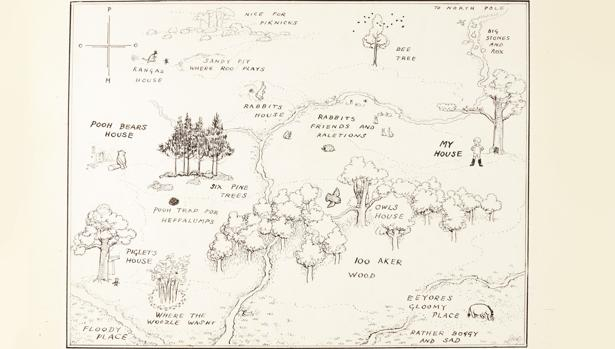 P
O
O
H
NICE FOR
PIKNICKS
TO NORTH POLE
BIG
STONES
AND
ROX
BEE
TREE
SANDY PIT
WHERE ROO PLAYS
KANGAS
HOUSE
RABBITS
HOUSE
RABBITS
FRIENDS AND
RALETIONS
POOH BEARS
HOUSE
MY
HOUSE
SIX PINE
TREES
POOH TRAP FOR
HEFFALUMPS
OWLS
HOUSE
PIGLETS
HOUSE
100 AKER
WOOD
WHERE THE
WOOZLE WASNT
FLOODY
PLACE
EEYORES
GLOOMY
PLACE
RATHER BOGGY
AND SAD